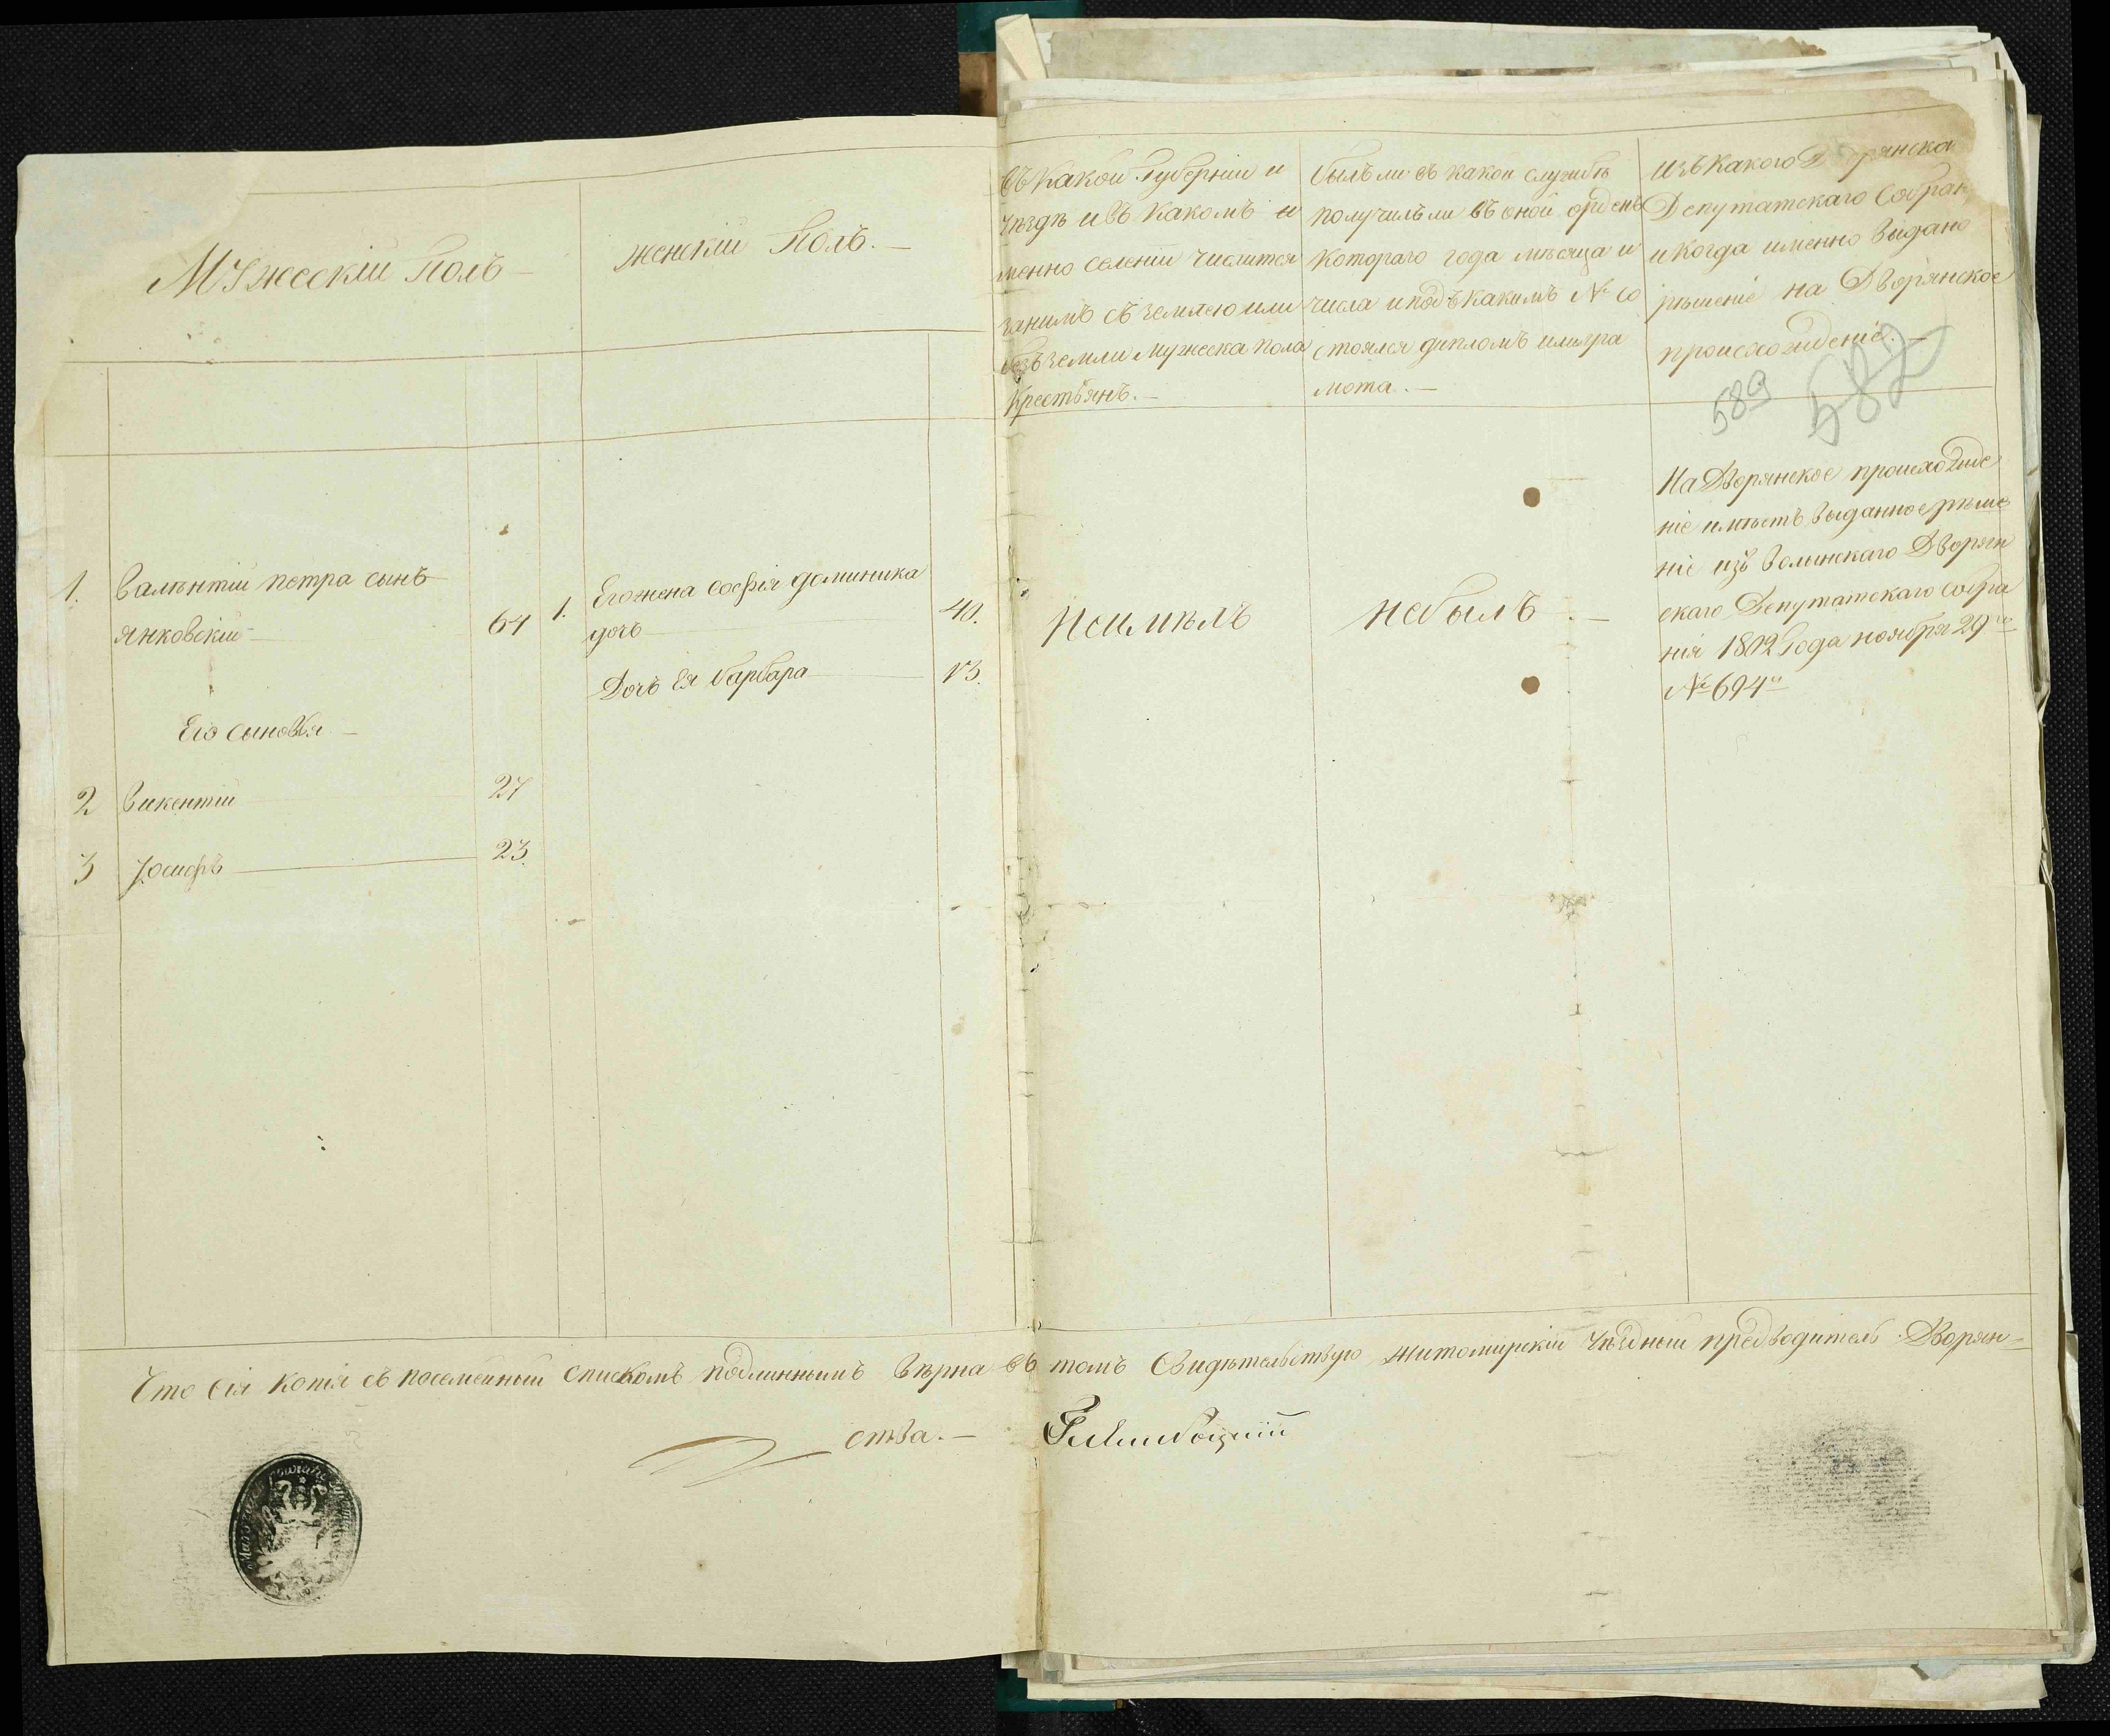 Мужескій Полъ
женскій Полъ. —
въ какой Губерніи и
уѣздѣ и въ какомъ и
менно селеніи числится
занимъ съ землею или
безъ земли мужеска пола
крестьянъ. —
былъ ли въ какой службѣ
получилъ ли въ оной орденъ
котораго года мѣсяца и
числа и подъ какимъ № со
стоялся дипломъ или гра
мота. —
изъ какого Дворянска
Депутатскаго Собран
и когда именно выдано
рѣшеніе на Дворянское
происхожденіе. —
589
582
1. Валѣнтій петра сынъ
янковскій — 64
1. Его жена софія доминика
дочь 40.
Дочь Ея варвара 13.
Его сыновья —
2 Викентій 27
3 Іосифъ 23.
Неимѣлъ
небылъ. —
На Дворянское происхожде
ніе имѣетъ выданное рѣше
ніе изъ волынскаго Дворян
скаго Депутатскаго собра
нія 1802 года ноября 29го
№ 694м
Что сія копія съ посемейным спискомъ подлиннымъ вѣрна въ томъ свидѣтельствую житомирскій уѣздный предводитель Дворян=
ства. —